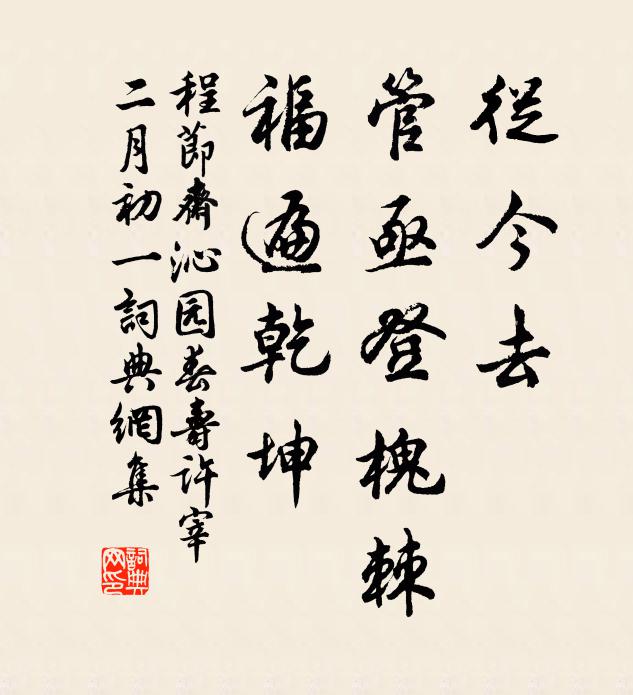 從今去
管亟登槐棘
福遍乾坤
程節齋沁园春壽許宰
二月初一詞典網集
詞典网印